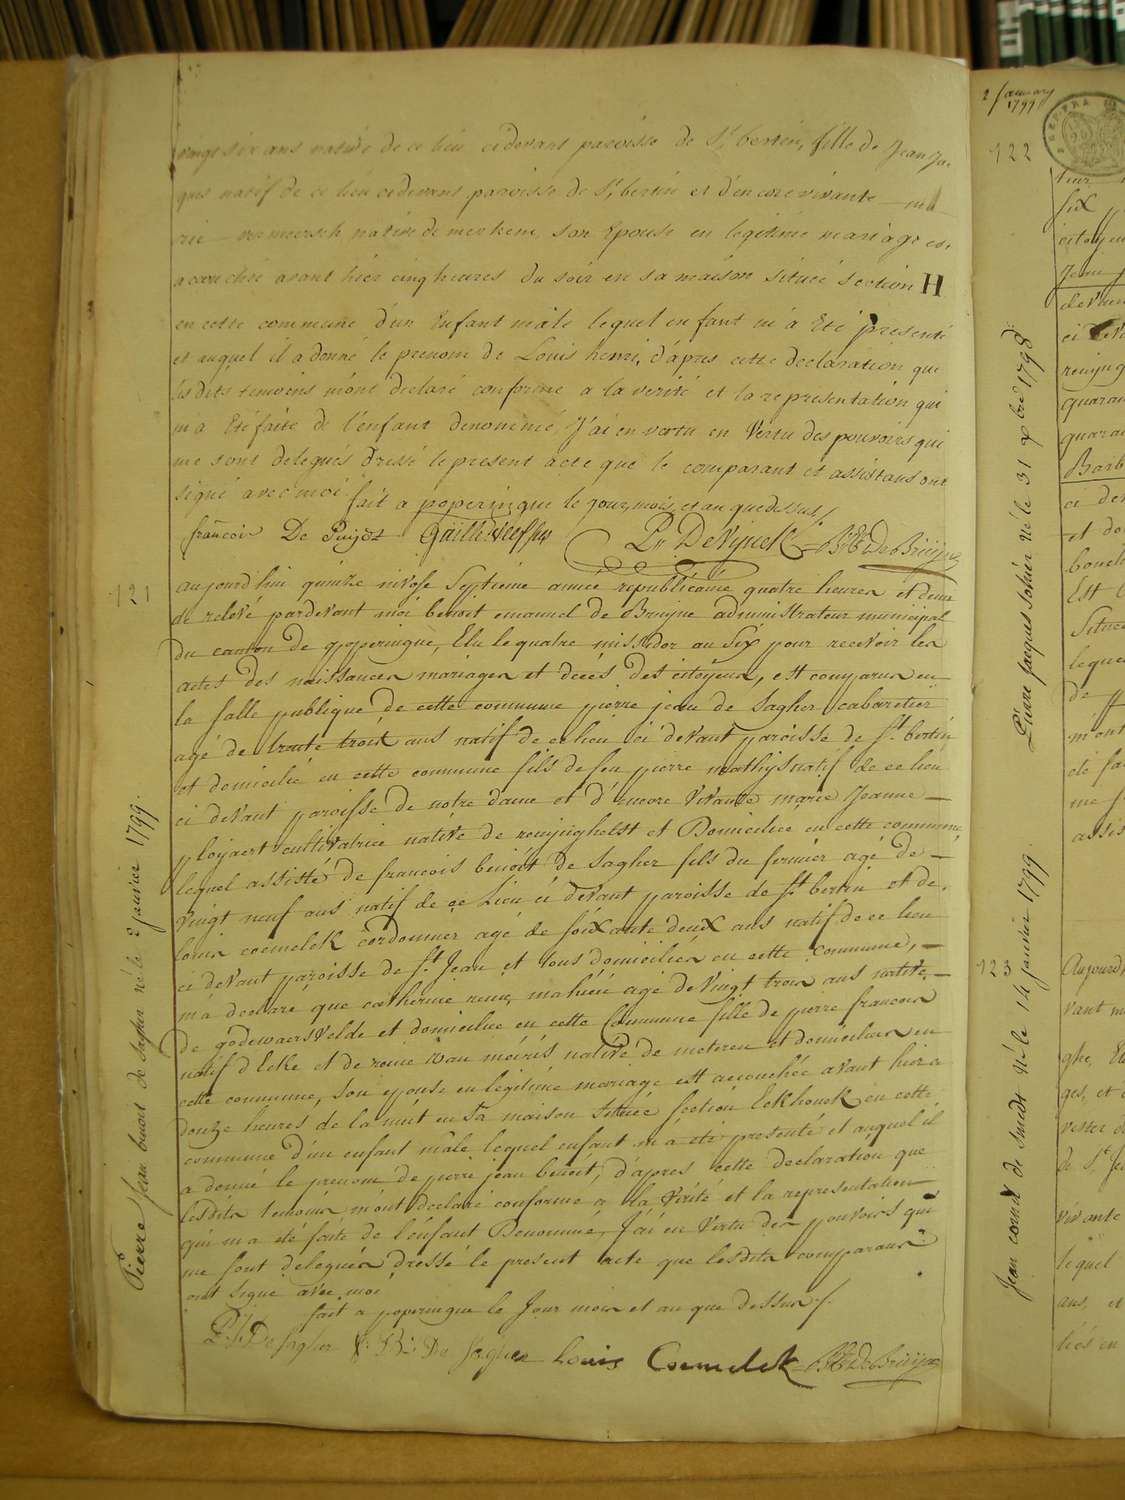 vingt six ans native de ce lieu cidevant paroisse de St bertin, fille de Jean Ja-
ques natif de ce lieu cidevant paroisse de St bertin et d'encore vivante ma
rie vermeersch native de merkem, son Epouse en legitime mariage est
accouchée avant hier cinq heures du soir en sa maison située section H
en cette commune d'un Enfant mâle lequel enfant m'a Eté présenté
et auquel il a donné le prenom de Louis henri, d'âpres cette declaration que
lesdits temoins m'ont declaré conforme a la verité et la representation qui
m'a Eté faite de l'enfant denommé, J'ai en vertu en Vertu des pouvoirs qui
me sont delegués dressé le present acte que le comparant et assistans ont
signé avec moi
fait a poperingue le jour, mois, et an que dessus /
françois De Puijdt P. DeVynck B: E: de Bruijne
121
aujourd'hui quinze nivose Septieme année républicaine quatre heures et demi
de relevé pardevant moi benoit emanuel de Bruyne administrateur municipal
du canton de poperingue, Elu le quatre missidor an Six pour recevoir les
actes des naissances mariages et décès des citoyens, est comparu en
la salle publique de cette commune pierre jean de Sagher cabaretier
agé de trente trois ans natif de ce lieu ci devant paroisse de St. bertin
et domicilié en cette commune fils de feu pierre mathijs natif de ce lieu
ci devant paroisse de notre dame et d'encore vivante marie Jeanne
ployaert cultivatrice native de renijnghelst et Domiciliée en cette commune
lequel assisté de francois benoit de Sagher fils du fermier agé de
vingt neuf ans natif de ce Lieu ci devant paroisse de St bertin et de
Louis coemelck cordonnier agé de soixante deux ans natif de ce lieu
ci devant paroisse de St Jean et tous domiciliés en cette commune,
m'a declaré que catherine mahieu agé de vingt trois ans native
de godewaersvelde et domiciliée en cette Commune fille de pierre francois
natif d'Ecke et de reine van méris native de meteren et domiciliés en
cette commune, son epouse en legitime mariage est accouchée avant hier a
douze heures de la nuit en sa maison située section Eekhouck en cette
commune d'un enfant mâle lequel enfant m'a été presenté et auquel il
a donné le prenom de pierre jean benoit, d'apres cette declaration que
lesdits temoins m'ont declaré conforme a la Verité et la representation
qui m'a été faite de l'enfant Denommé, J'ai en Vertu des pouvoirs qui
me sont delegués dressé le present acte que lesdits comparans
ont signé avec moi
fait a poperingue le Jour mois et an que dessus /.
P: J: De Sagher f: B: De Sagher Louis Coemelck B: E: de Bruijne
Pierre Jean benoit de Sagher né le 2 janvier 1799.
2 January
1799
122
Pierre Jacques né le 31 xbre 1798
123
Jean de Smedt né le 14 janvier 1799